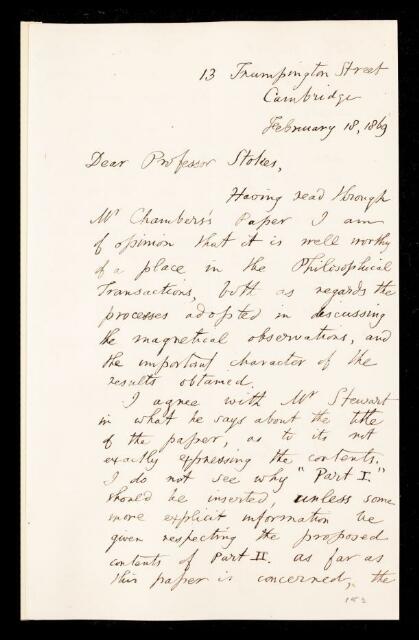 13 Trumpington Street
Cambridge
February 18, 1869
Dear Professor Stokes,
Having read through
Mr Chambers's Paper I am
of opinion that it is well worthy
of a place in the Philosophical
Transactions, both as regards the
processes adopted in discussing
the magnetical observations, and
the important character of the
results obtained.
I agree with Mr Stewart
in what he says about the title
of the paper, as to its not
exactly expressing the contents.
I do not see why "Part I."
should be inserted, unless some
more explicit information be
given respecting the proposed
contents of Part II. As far as
this paper is concerned, the